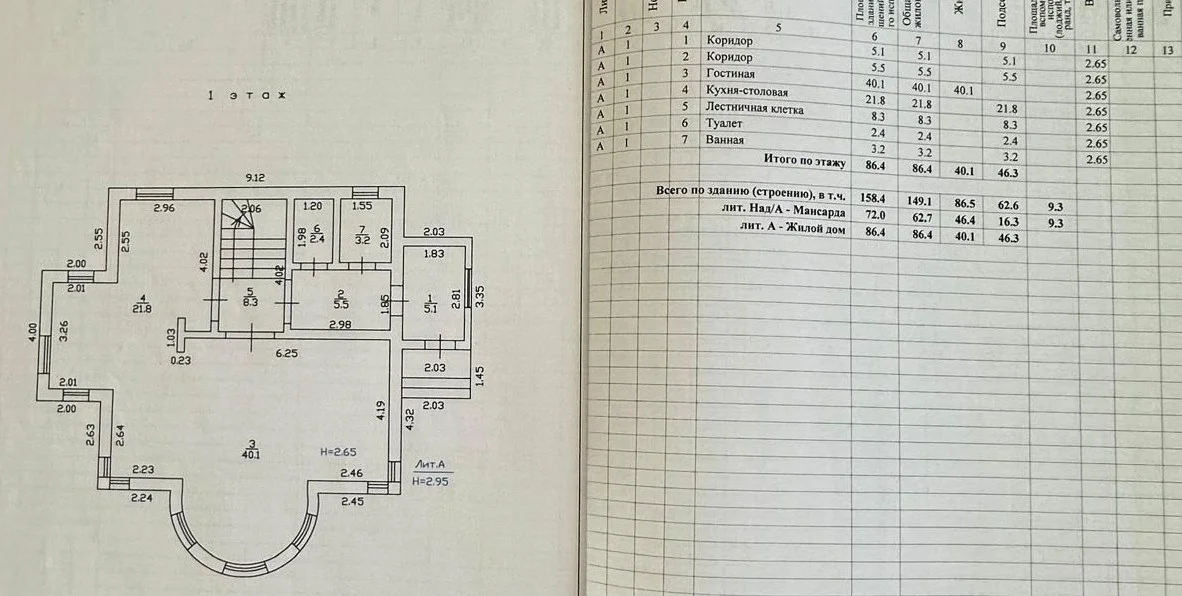 1 этаж
9.12
2.96
2.06
1.20
1.55
2.55
2.55
1.98
6
2.4
7
3.2
2.09
2.03
1.83
2.00
2.01
4.02
4.02
4
21.8
5
8.3
2
5.5
1.85
1
5.1
2.81
3.35
4.00
3.26
1.03
2.98
0.23
6.25
2.03
1.45
2.01
2.00
2.03
4.19
4.32
2.63
2.64
3
40.1
H=2.65
Лит.А
H=2.95
2.23
2.24
2.46
2.45
1 2 3 4 5 6 7 8 9 10 11 12 13
А 1 1 Коридор 5.1 5.1 5.1 2.65
А 1 2 Коридор 5.5 5.5 5.5 2.65
А 1 3 Гостиная 40.1 40.1 40.1 2.65
А 1 4 Кухня-столовая 21.8 21.8 21.8 2.65
А 1 5 Лестничная клетка 8.3 8.3 8.3 2.65
А 1 6 Туалет 2.4 2.4 2.4 2.65
А 1 7 Ванная 3.2 3.2 3.2 2.65
Итого по этажу 86.4 86.4 40.1 46.3
Всего по зданию (строению), в т.ч. 158.4 149.1 86.5 62.6 9.3
лит. Над/А - Мансарда 72.0 62.7 46.4 16.3 9.3
лит. А - Жилой дом 86.4 86.4 40.1 46.3